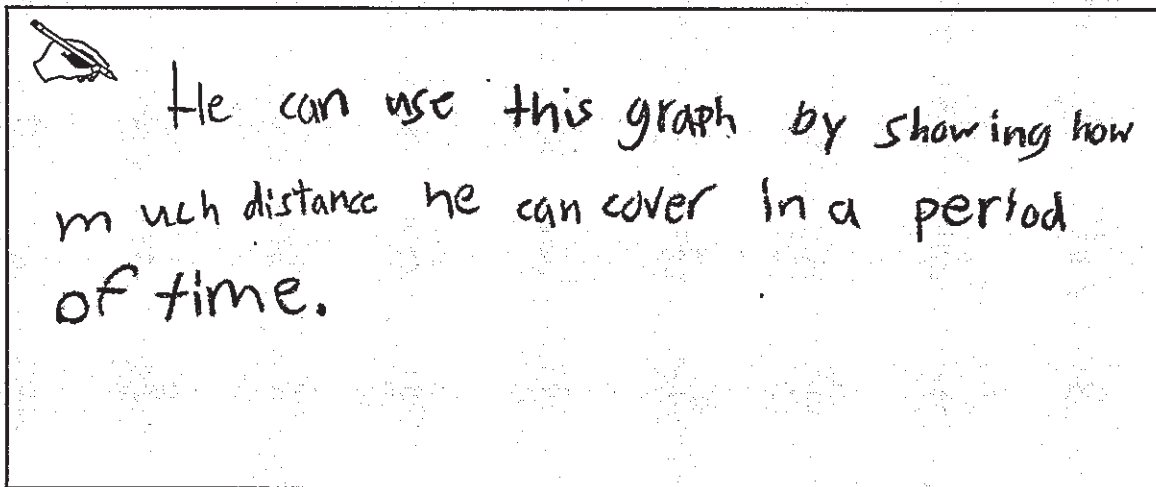 He can use this graph by showing how
much distance he can cover in a period
of time.